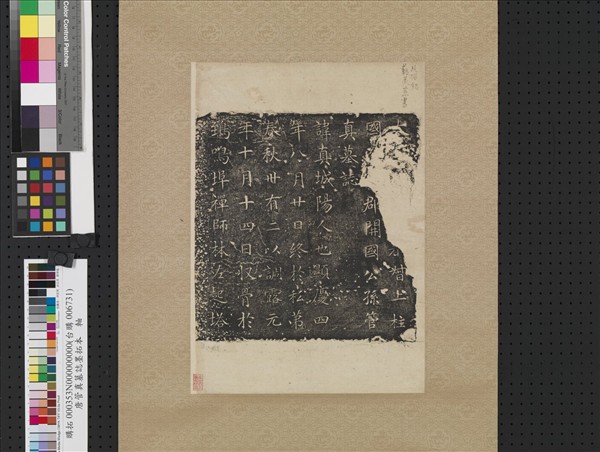 大
村上柱
國 郡開國公孫管
真墓誌
諱真城陽人也顯慶四
年八月廿日終於私第
春秋卅有二以調露元
年十月十四日收骨於
鴟鳴埠禪師林左起塔
Color Control Patches
購拓 000353N000000000(台購 006731)
唐管真墓誌墨拓本 軸